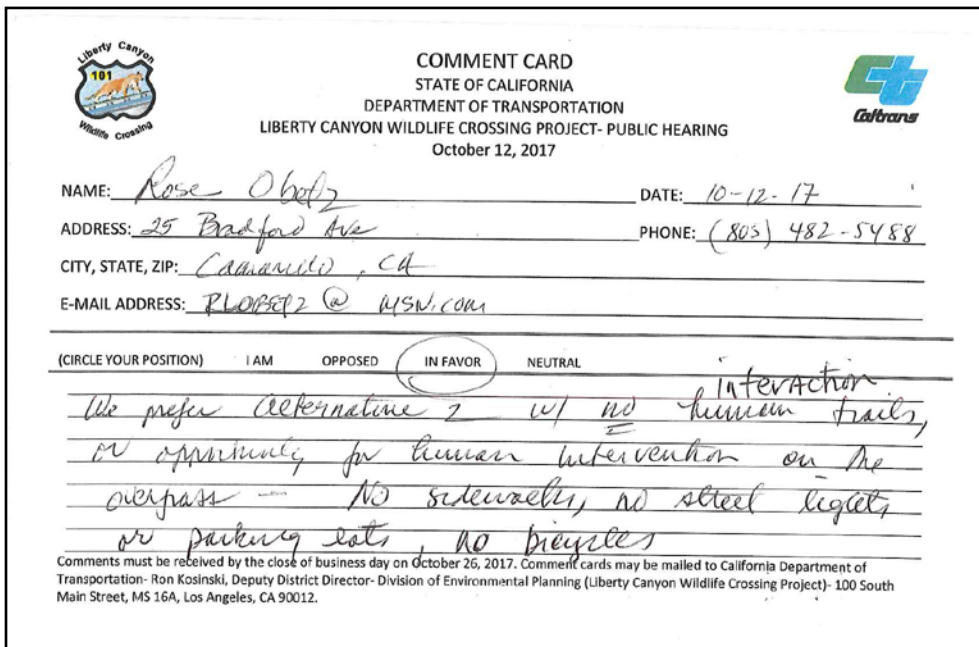 Liberty Canyon
101
Wildlife Crossing
COMMENT CARD
STATE OF CALIFORNIA
DEPARTMENT OF TRANSPORTATION
LIBERTY CANYON WILDLIFE CROSSING PROJECT- PUBLIC HEARING
October 12, 2017
Caltrans
NAME: Rose
DATE: 10-12-17
ADDRESS: 25 Bradford Ave
PHONE: (805) 482-5488
CITY, STATE, ZIP: Camarillo, CA
E-MAIL ADDRESS: @ MSN.COM
(CIRCLE YOUR POSITION) I AM OPPOSED IN FAVOR NEUTRAL
interaction
We prefer Alternative 2 w/ no human trails,
or opportunity for human intervention on the
overpass - No sidewalks, no street lights
or parking lots, no bicycles
Comments must be received by the close of business day on October 26, 2017. Comment cards may be mailed to California Department of
Transportation- Ron Kosinski, Deputy District Director- Division of Environmental Planning (Liberty Canyon Wildlife Crossing Project)- 100 South
Main Street, MS 16A, Los Angeles, CA 90012.